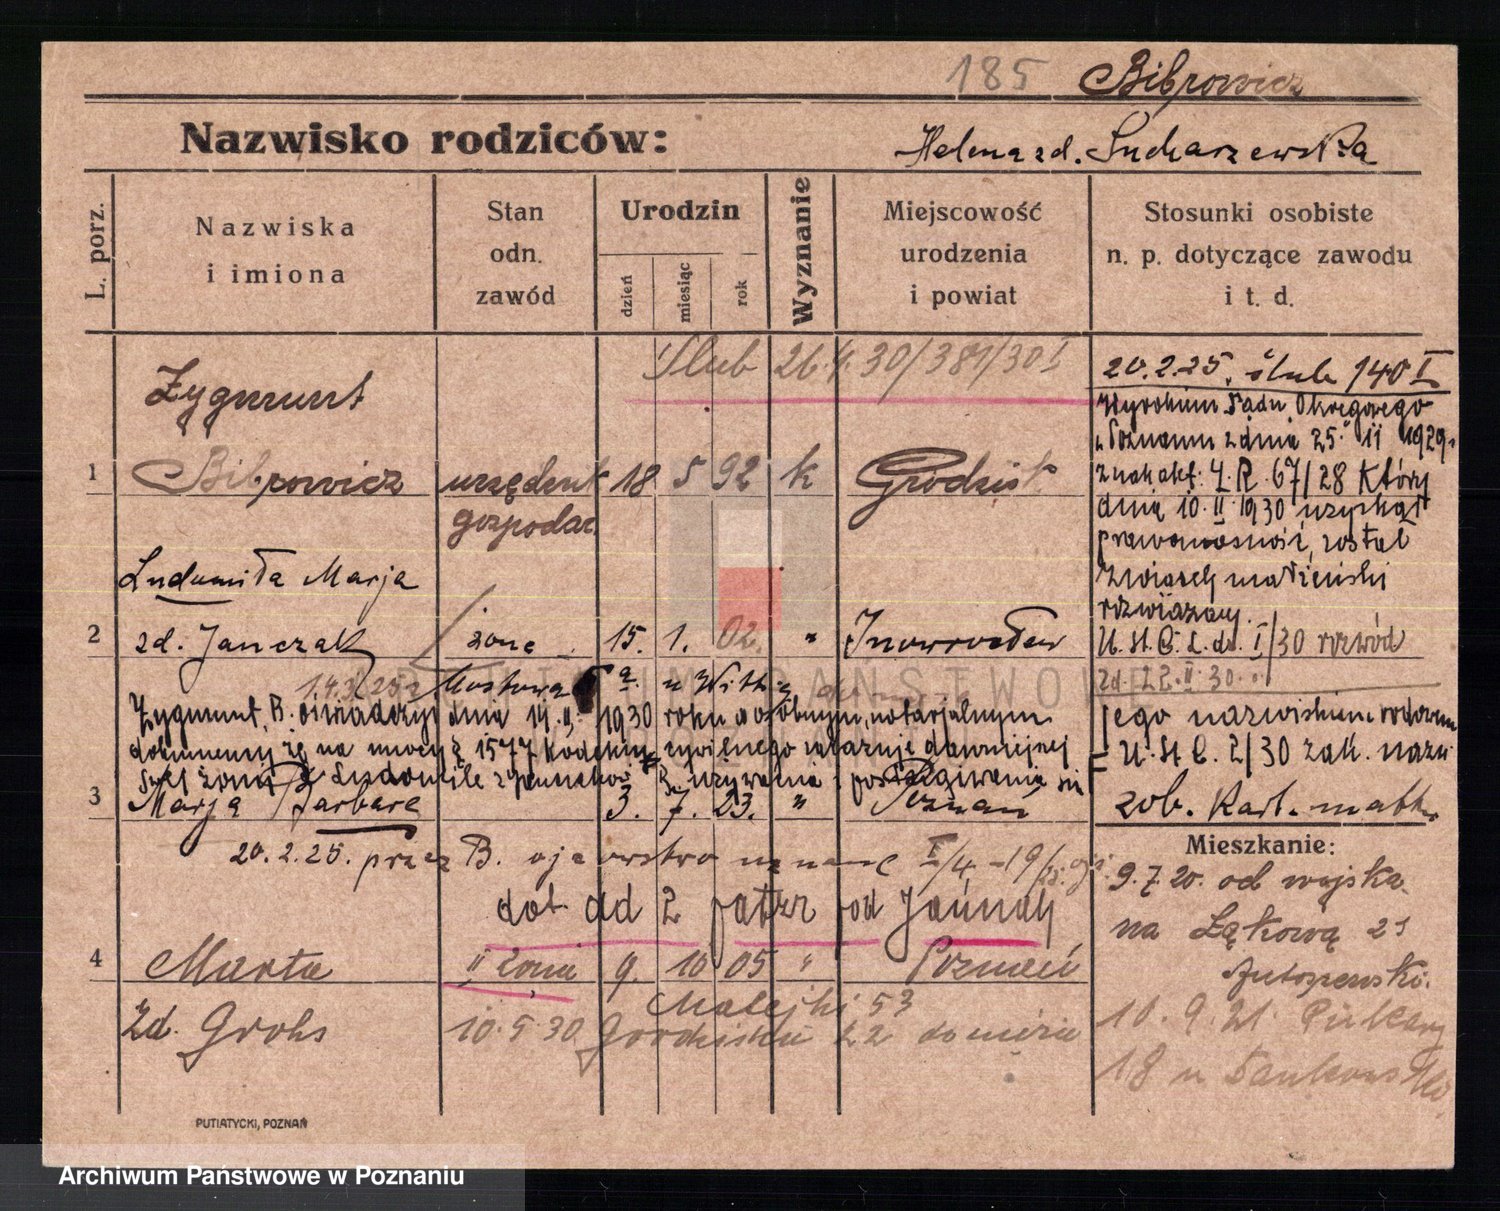 185 Bibrowicz
Nazwisko rodziców:
Helena zd. Sucharzewska
L. porz.
Nazwiska
i imiona
Stan
odn.
zawód
Urodzin
dzień
miesiąc
rok
Wyznanie
Miejscowość
urodzenia
i powiat
Stosunki osobiste
n. p. dotyczące zawodu
i t. d.
Ślub 26.4.30/381/30 I
20.2.25. ślub 140 I
Wyrokiem Sądu Okręgowego
w Poznaniu z dnia 25. 11 1929.
znak akt: 4. R. 67/28 który
dnia 10. II 1930 uzyskał
prawomocność, został
związek małżeński
rozwiązany.
U. St. C. L. dz. I/30 rozwód
zd. 22. II. 30.
Zygmunt
1 Bibrowicz urzędnik 18 5 92 k Grodzisk
gospodar.
Ludomiła Marja
2 zd. Janczak żona 15. 1. 02. " Inowrocław
Mostowa
Zygmunt B. oświadczył dnia 14. II. 1930 roku w osobnym, notarjalnym
dokumencie, że na mocy § 1577 Kodeksu cywilnego zakazuje dawniejszej
swej żonie Ludomile z Janczaków B. używania i posługiwania się
jego nazwiskiem rodowem
U. St. C. 2/30 zak. nazw.
3 Marja Barbara 3. 7. 23. " Poznań
zob. Kart. matk.
20.2.25. przez B. ojcowstwo uznane I/4 - 19
dot. dd 2 patrz pod Janczak
4 Marta II żona 9. 10 05 " Poznań
zd. Grohs
Matejki 53
10.5.30 Grodzisku 22 do męża
Mieszkanie:
9.7.20. od wojska
na Łąkową 21
10.9.21. Piekary
18 u
PUTIATYCKI, POZNAŃ
ARCHIWUM PAŃSTWOWE
W POZNANIU
Archiwum Państwowe w Poznaniu